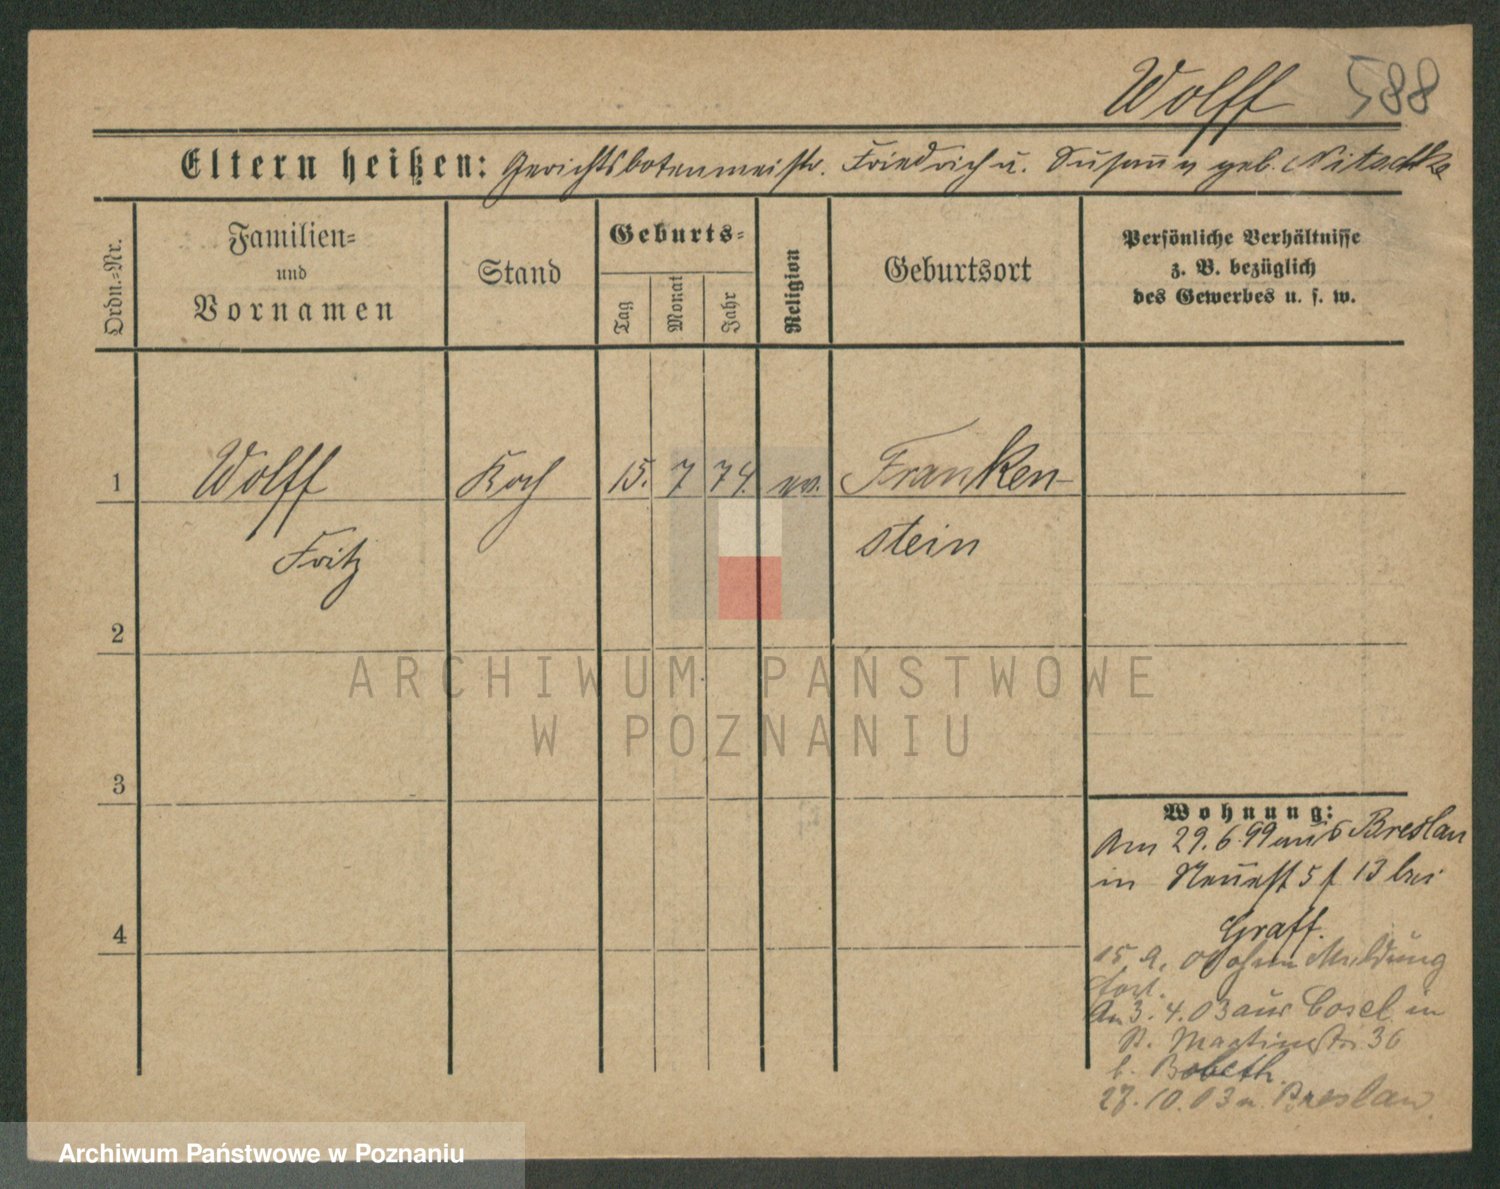 Wolff 588
Eltern heißen: Gerichtsbotenmeistr. Friedrich u. Susann geb. Nitschke
Ordn.=Nr.
Familien=
und
Vornamen
Stand
Geburts=
Tag
Monat
Jahr
Religion
Geburtsort
Persönliche Verhältnisse
z. B. bezüglich
des Gewerbes u. s. w.
1 Wolff Koch 15. 7 74. ev. Franken-
Fritz stein
2
3
4
ARCHIWUM PAŃSTWOWE
W POZNANIU
Wohnung:
Am 29.6.99 aus Breslau
in 5 13 bei
Graff.
15. 9. 00 ohne Meldung
fort.
Am 3.4.03 aus Cosel in
St. Martinstr. 36
b. Babeth.
27.10.03 n. Breslau.
Archiwum Państwowe w Poznaniu